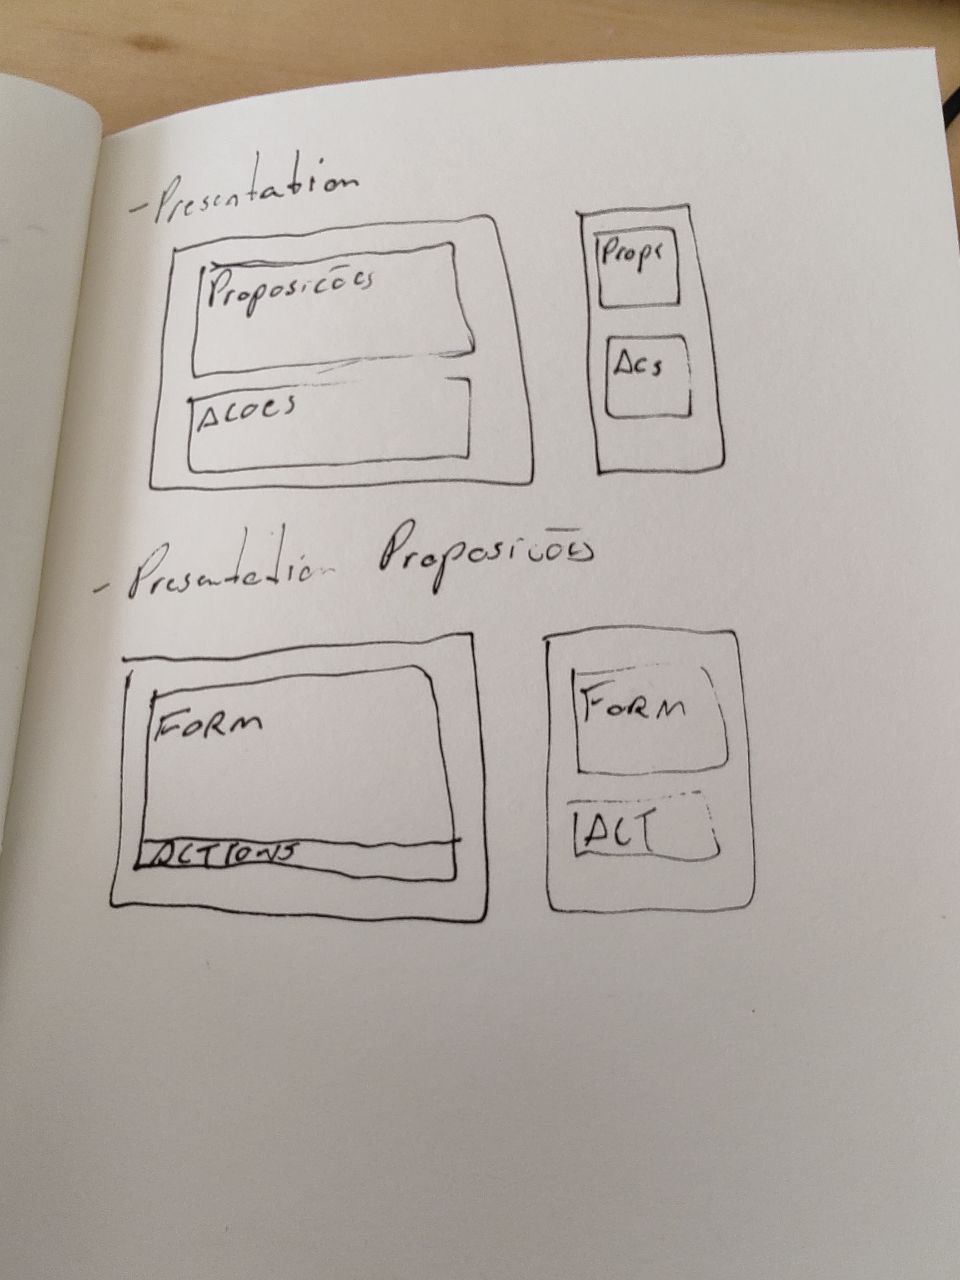 - Presentation
Proposicões
Acoes
Props
Acs
- Presentation Proposicões
FORM
ACTIONS
FORM
ACT